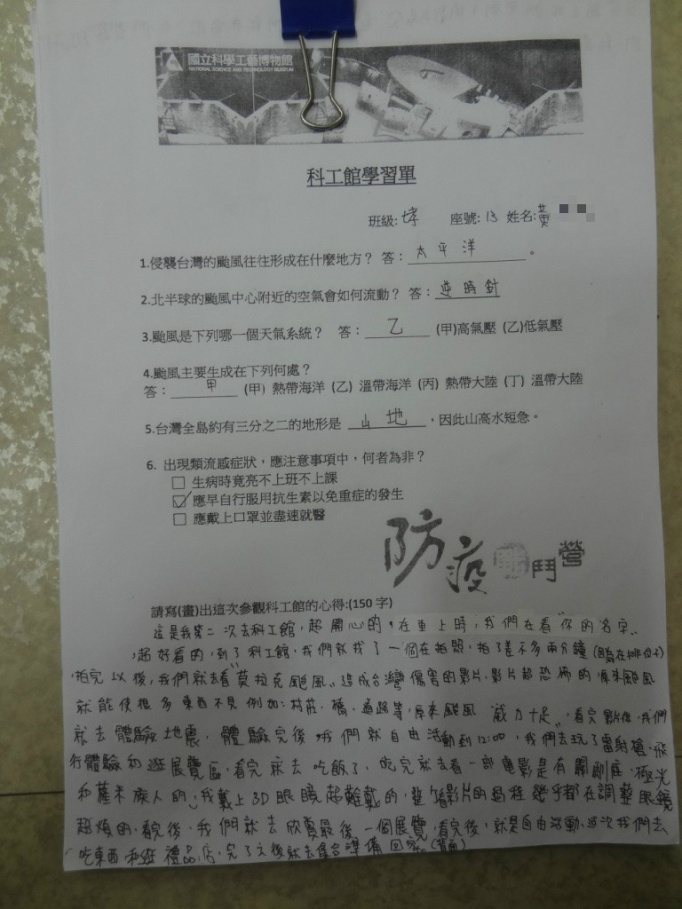 國立科學工藝博物館
NATIONAL SCIENCE AND TECHNOLOGY MUSEUM
科工館學習單
班級: 座號: 13 姓名: 黃
1.侵襲台灣的颱風往往形成在什麼地方？ 答：太平洋。
2.北半球的颱風中心附近的空氣會如何流動？ 答：逆時針
3.颱風是下列哪一個天氣系統？ 答：乙 (甲)高氣壓 (乙)低氣壓
4.颱風主要生成在下列何處？
答：甲 (甲) 熱帶海洋 (乙) 溫帶海洋 (丙) 熱帶大陸 (丁) 溫帶大陸
5.台灣全島約有三分之二的地形是 山地，因此山高水短急。
6. 出現類流感症狀，應注意事項中，何者為非？
□ 生病時竟亮不上班不上課
☑ 應早自行服用抗生素以免重症的發生
□ 應戴上口罩並盡速就醫
防疫戰鬥營
請寫(畫)出這次參觀科工館的心得:(150 字)
這是我第二次去科工館，超開心的，在車上時，我們在看"你的名字"
，超好看的，到了科工館，我們就找了一個在拍照，拍了差不多兩分鐘
，拍完以後，我們就去看"莫拉克颱風"造成台灣傷害的影片，影片超恐怖的，原來颱風
就能使很多東西不見，例如:村莊、橋、道路等，原來颱風"威力十足"，看完影片後，我們
就去體驗地震，體驗完後，我們就自由活動到12:00，我們去玩了雷射槍、飛
行體驗和逛展覽區，看完就去吃飯了，吃完就去看一部電影是有關馴鹿、極光
和薩米族人的，我戴上3D眼鏡超難戴的，整個看影片的過程幾乎都在調整眼鏡
超煩的，看完後，我們就去欣賞最後一個展覽，看完後，就是自由活動，這次我們去
吃東西和逛禮品店，完了之後就去集合準備回家。(背面)